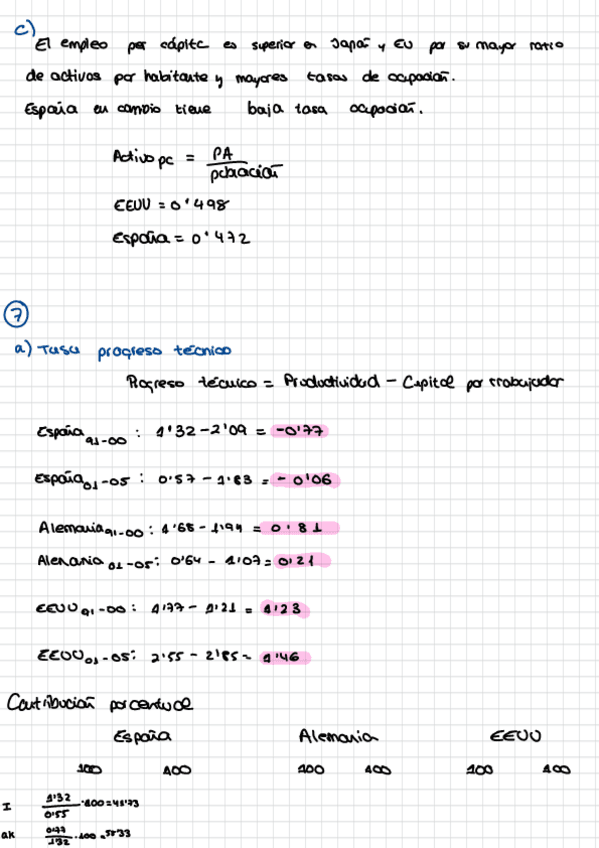 c)
El empleo per cápita es superior en Japón y EU por su mayor ratio
de activos por habitante y mayores tasas de ocupación.
España en cambio tiene baja tasa ocupación.
Activo pc = PA / población
EEUU = 0'498
España = 0'472
7
a) Tasa progreso técnico
Progreso técnico = Productividad - Capital por trabajador
España 91-00 : 1'32 - 2'09 = -0'77
España 01-05 : 0'57 - 1'83 = -0'06
Alemania 91-00 : 1'68 - 1'94 = 0'81
Alemania 01-05 : 0'64 - 1'07 = 0'21
EEUU 91-00 : 1'77 - 1'21 = 1'23
EEUU 01-05 : 2'55 - 2'85 = 1'46
Contribución porcentual
España Alemania EEUU
100 100 100 100 100 100
I 1'32 / 0'55 · 100 =
ak 0'77 / 1'32 · 100 = 58'33